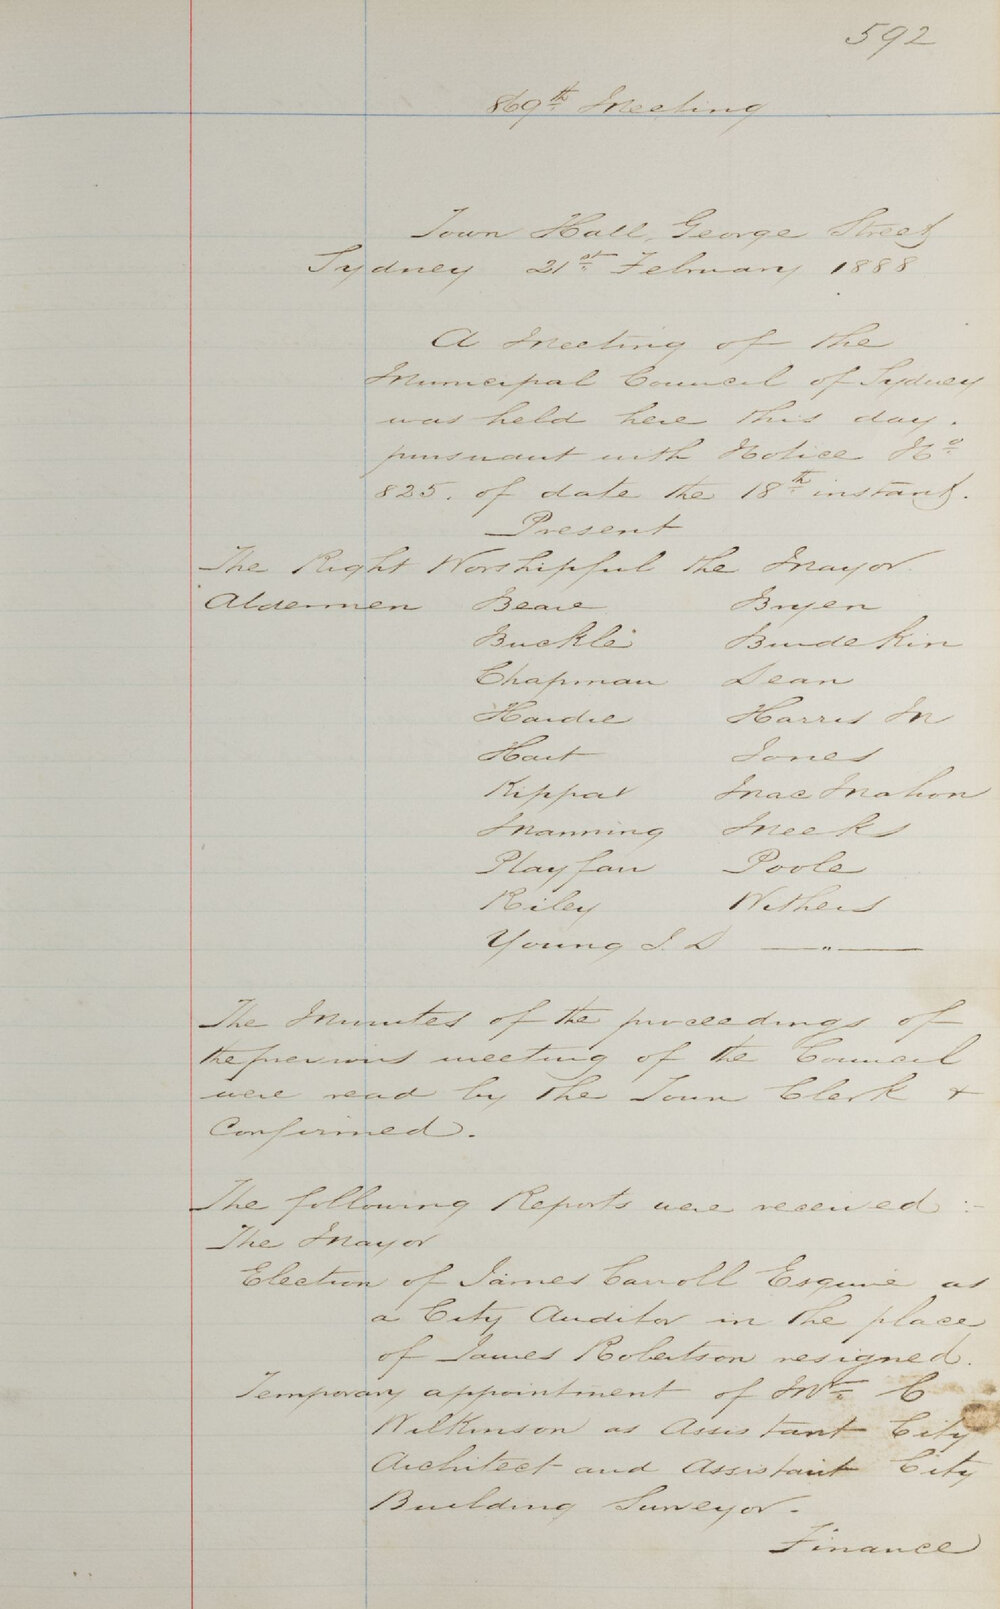 592
869th Meeting
Town Hall, George Street
Sydney 21st February 1888
A Meeting of the
Municipal Council of Sydney
was held here this day.
pursuant with Notice No
825. of date the 18th instant.
Present
The Right Worshipful the Mayor
Aldermen Beare Bryen
Buckle Burdekin
Chapman Dean
Hardie Harris M
Hart Jones
Kippax MacMahon
Manning Meeks
Playfair Poole
Riley Withers
Young J. D —"—
The Minutes of the proceedings of
the previous meeting of the Council
were read by the Town Clerk &
Confirmed.
The following Reports were received :-
The Mayor
Election of James Carroll Esquire as
a City Auditor in the place
of James Robertson resigned.
Temporary appointment of Mr. C
Wilkinson as Assistant City
Architect and Assistant City
Building Surveyor.
Finance